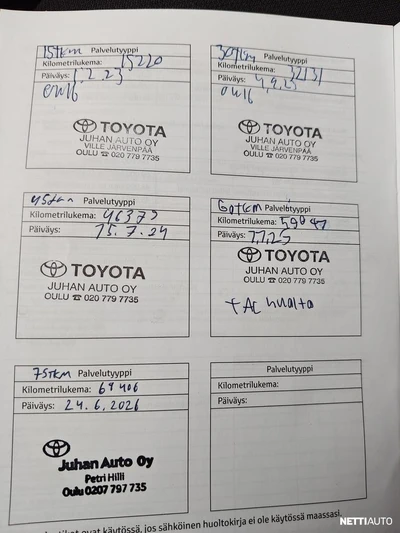 15tkm Palvelutyyppi
Kilometrilukema: 15220
Päiväys: 1,2,23
0w16
TOYOTA
JUHAN AUTO OY
VILLE JÄRVENPÄÄ
OULU ☎ 020 779 7735
30tkm Palvelutyyppi
Kilometrilukema: 32131
Päiväys: 4,9,23
0w16
TOYOTA
JUHAN AUTO OY
VILLE JÄRVENPÄÄ
OULU ☎ 020 779 7735
45tkm Palvelutyyppi
Kilometrilukema: 46373
Päiväys: 15.7.24
TOYOTA
JUHAN AUTO OY
OULU ☎ 020 779 7735
60tkm Palvelutyyppi
Kilometrilukema: 59047
Päiväys: 7,1,25
TOYOTA
JUHAN AUTO OY
OULU ☎ 020 779 7735
+ AC huolto
75tkm Palvelutyyppi
Kilometrilukema: 69406
Päiväys: 24.6.2026
Juhan Auto Oy
Petri Hilli
Oulu 0207 797 735
Palvelutyyppi
Kilometrilukema:
Päiväys:
ovat käytössä, jos sähköinen huoltokirja ei ole käytössä maassasi.
NETTIAUTO